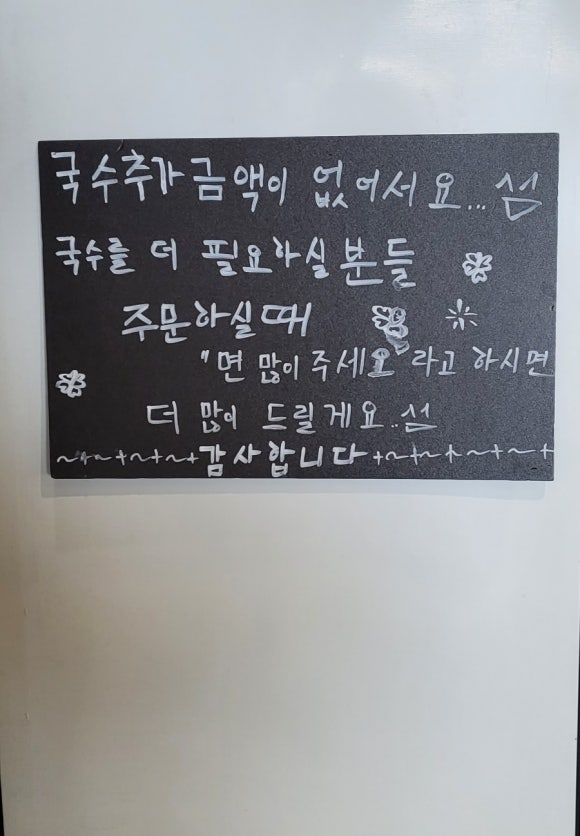 국수추가금액이 없어서요...섬
국수를 더 필요하실분들
주문하실때
"면 많이주세요"라고 하시면
더 많이 드릴게요..섬
~+~+~+~+감사합니다+~+~+~+~+